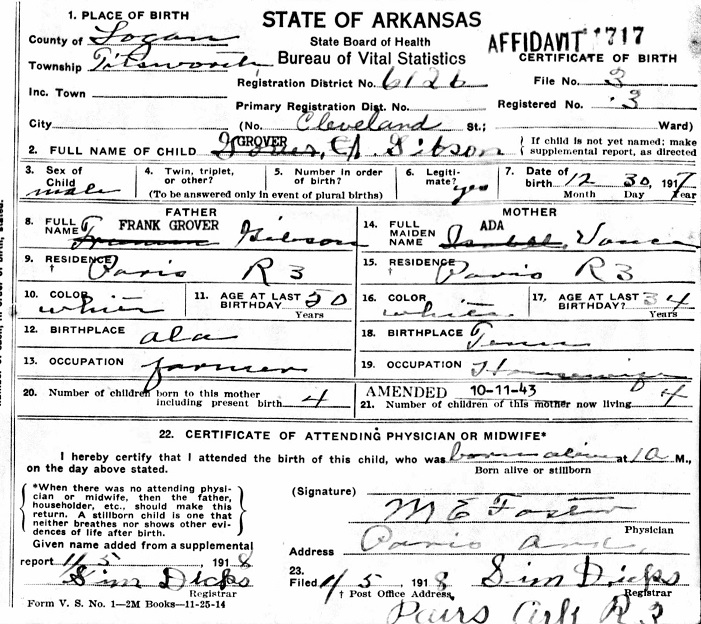 1. PLACE OF BIRTH
STATE OF ARKANSAS
County of Logan
State Board of Health
AFFIDAVIT 1717
Township Titsworth
Bureau of Vital Statistics
CERTIFICATE OF BIRTH
Registration District No. 6126
File No. 3
Inc. Town
Primary Registration Dist. No.
Registered No. 3
City
(No. Cleveland St.; Ward)
2. FULL NAME OF CHILD GROVER A Gibson
{ If child is not yet named; make
supplemental report, as directed
3. Sex of Child male
4. Twin, triplet, or other?
5. Number in order of birth?
(To be answered only in event of plural births)
6. Legitimate? yes
7. Date of birth 12 30, 1917
Month Day Year
FATHER
8. FULL NAME FRANK GROVER Gibson
9. RESIDENCE † Paris R 3
10. COLOR white
11. AGE AT LAST BIRTHDAY 50
Years
12. BIRTHPLACE ala
13. OCCUPATION farmer
MOTHER
14. FULL MAIDEN NAME ADA Isabell Vance
15. RESIDENCE † Paris R 3
16. COLOR white
17. AGE AT LAST BIRTHDAY? 34
Years
18. BIRTHPLACE Tenn
19. OCCUPATION Housewife
20. Number of children born to this mother
including present birth 4
AMENDED 10-11-43
21. Number of children of this mother now living 4
22. CERTIFICATE OF ATTENDING PHYSICIAN OR MIDWIFE*
I hereby certify that I attended the birth of this child, who was born alive at 10 M.,
on the day above stated.
Born alive or stillborn
*When there was no attending physi-
cian or midwife, then the father,
householder, etc., should make this
return. A stillborn child is one that
neither breathes nor shows other evi-
dences of life after birth.
(Signature)
M E Foster
Physician
Address Paris Ark
Given name added from a supplemental
report 1/5, 1918
Sim Dicks
Registrar
23.
Filed 1/5, 1918 Sim Dicks
† Post Office Address Registrar
Pairs Ark R 3
Form V. S. No. 1—2M Books—11-25-14